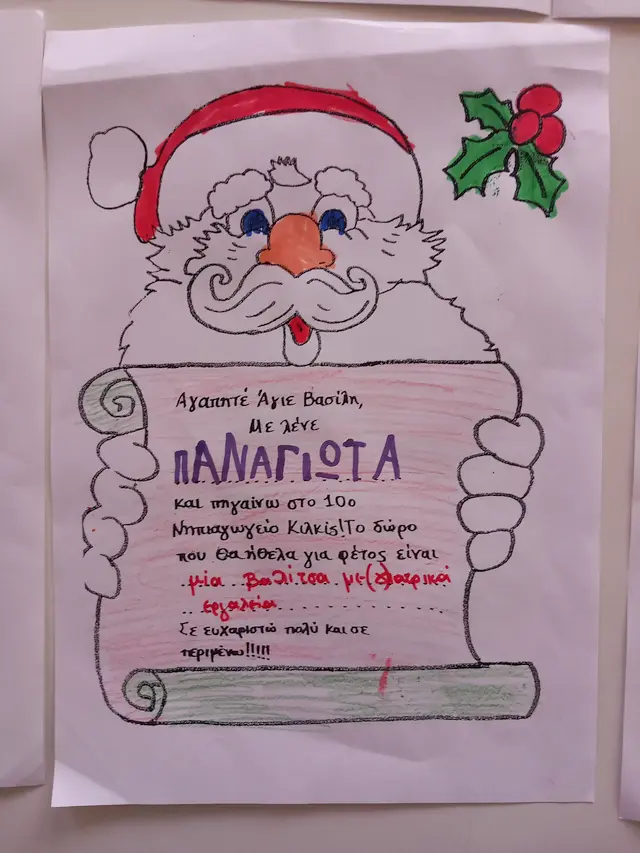 Αγαπητέ Άγιε Βασίλη,
Με λένε
ΠΑΝΑΓΙΩΤΑ
και πηγαίνω στο 10ο
Νηπιαγωγείο Κιλκίς!Το δώρο
που θα ήθελα για φέτος είναι
μία βαλίτσα με (γ)ιατρικά
εργαλεία
Σε ευχαριστώ πολύ και σε
περιμένω!!!!!